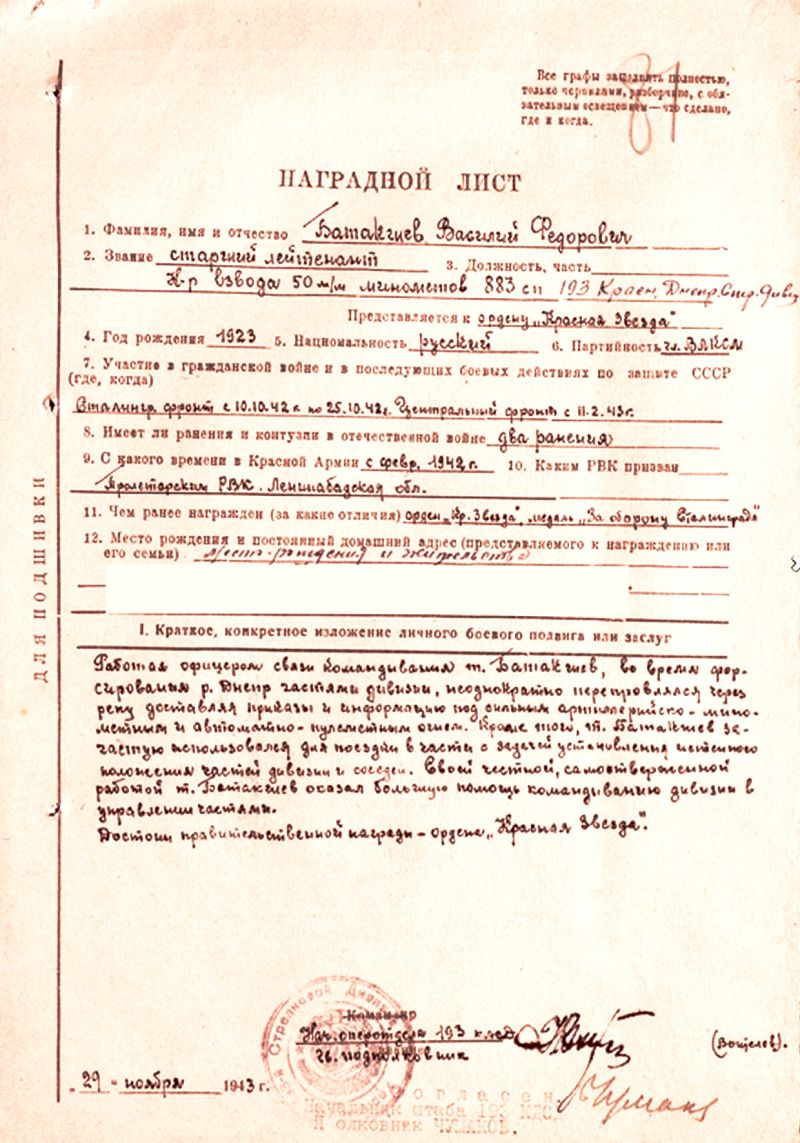 Все графы заполнять полностью,
только чернилами, разборчиво, с обя-
зательным освещением — что сделано,
где и когда.
НАГРАДНОЙ ЛИСТ
1. Фамилия, имя и отчество Батакчиев Василий Федорович
2. Звание старший лейтенант 3. Должность, часть
К-р взвода 50 м/м минометов 883 сп 193 Красн. Днепр. Стр. дивиз
Представляется к ордену „Красная Звезда"
4. Год рождения 1923 5. Национальность русский 6. Партийность чл. ВЛКСМ
7. Участие в гражданской войне и в последующих боевых действиях по защите СССР
(где, когда)
Сталингр фронт с 10.10.42 г. по 25.10.42 г. Центральный фронт с 11.2.43 г.
8. Имеет ли ранения и контузии в отечественной войне два ранения
9. С какого времени в Красной Армии с февр. 1942 г. 10. Каким РВК призван
Пролетарским РВК. Ленинабадская обл.
11. Чем ранее награжден (за какие отличия) орден „Кр. Звезда", медаль „За оборону Сталинграда"
12. Место рождения и постоянный домашний адрес (представляемого к награждению или
его семьи) место рождения и жительства
I. Краткое, конкретное изложение личного боевого подвига или заслуг
Работая офицером связи командивания т. Батакчиев, во время фор-
сирования р. Днепр частями дивизии, неоднократно переправлялся через
реку доставляя приказы и информацию под сильным артиллерийско-мино-
метным и автоматно-пулеметным огнем. Кроме того, т. Батакчиев за-
частую использовался для поездки в части с задачей установления истенного
положения частей дивизии и соседей. Своей честной, самоотверженной
работой т. Батакчиев оказал большую помощь командиванию дивизии в
управлении частями.
Достоин правительственной награды - ордена „Красная Звезда".
ДЛЯ ПОДШИВКИ
Стрелковой Дивизии
Командир
Нач. оперотдела 193 ксд
гв. подполковник
29 - ноября 1943 г.
Согласен
Начальник штаба 193 КДСД
Полковник ЧУМАКОВ.